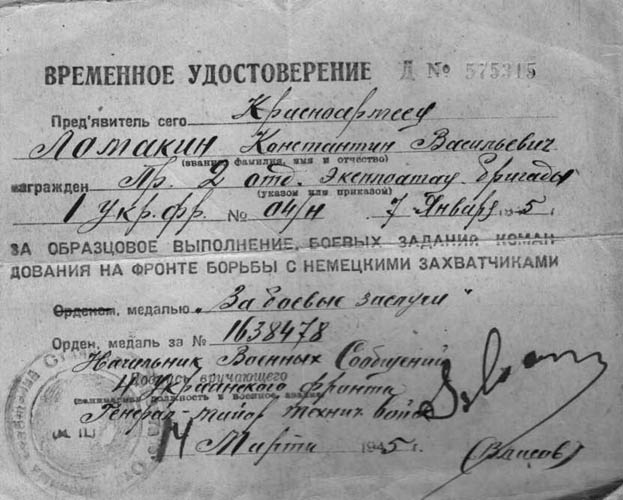 ВРЕМЕННОЕ УДОСТОВЕРЕНИЕ Д № 575315
Пред'явитель сего Красноармеец
Ломакин Константин Васильевич
(звание, фамилия, имя и отчество)
награжден Пр. 2 отд. Эксплоатац бригады
(указом или приказом)
1 Укр. фр. № 04/н 7 Января 1945 г.
ЗА ОБРАЗЦОВОЕ ВЫПОЛНЕНИЕ БОЕВЫХ ЗАДАНИЙ КОМАН-
ДОВАНИЯ НА ФРОНТЕ БОРЬБЫ С НЕМЕЦКИМИ ЗАХВАТЧИКАМИ
Орденом, медалью "За боевые заслуги"
Орден, медаль за № 1638478
Начальник Военных Сообщений
Подпись вручающего
4 Украинского фронта
должность и военное звание
Генерал-майор технич войск
14 Марта 1945 г.